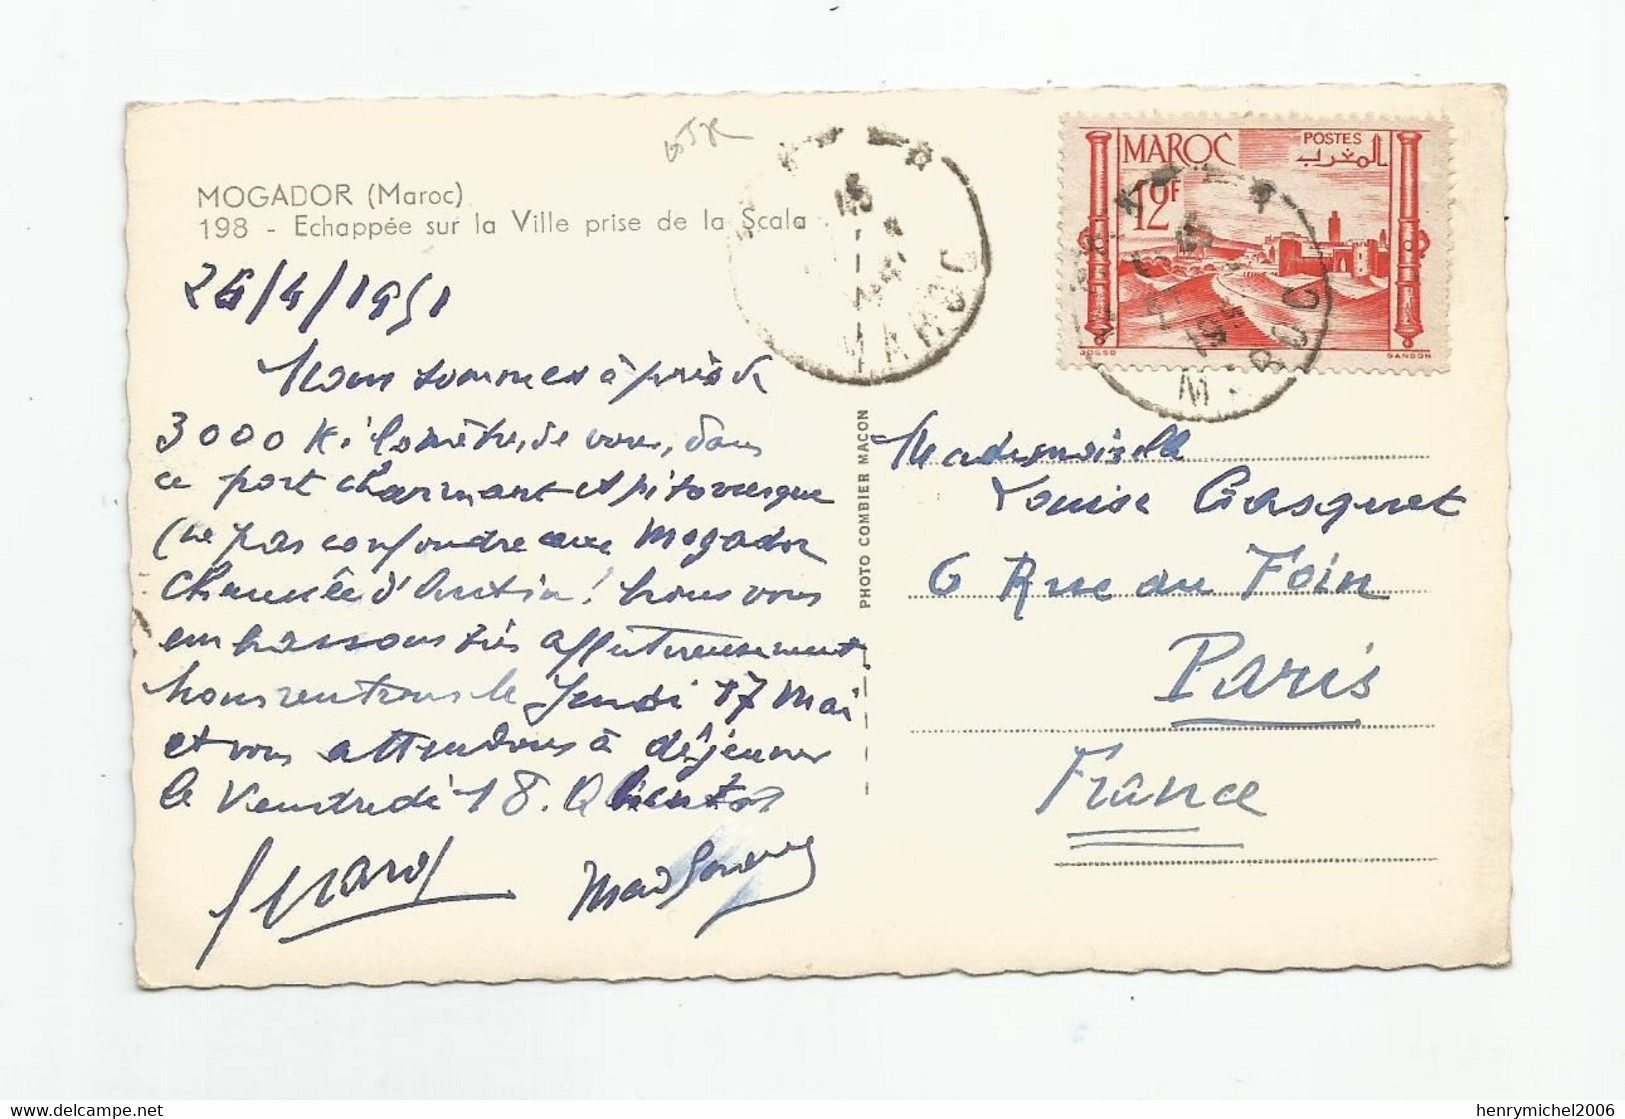 MOGADOR (Maroc)
198 - Echappée sur la Ville prise de la Scala
26/4/1951
Nous sommes à près de
3000 Kilomètres de vous, dans
ce port charmant et pittoresque
(ne pas confondre avec Mogador
Chaussée d'Antin! Nous vous
embrassons très affectueusement
Nous rentrons le Jeudi 17 Mai
et vous attendons à déjeuner
le Vendredi 18. A bientôt
PHOTO COMBIER MACON
MAROC
MAROC
POSTES
المغرب
12F
JOSSO
GANDON
MAROC
Mademoiselle
Louise Gasquet
6 Rue du Foin
Paris
France
henrymichel2006